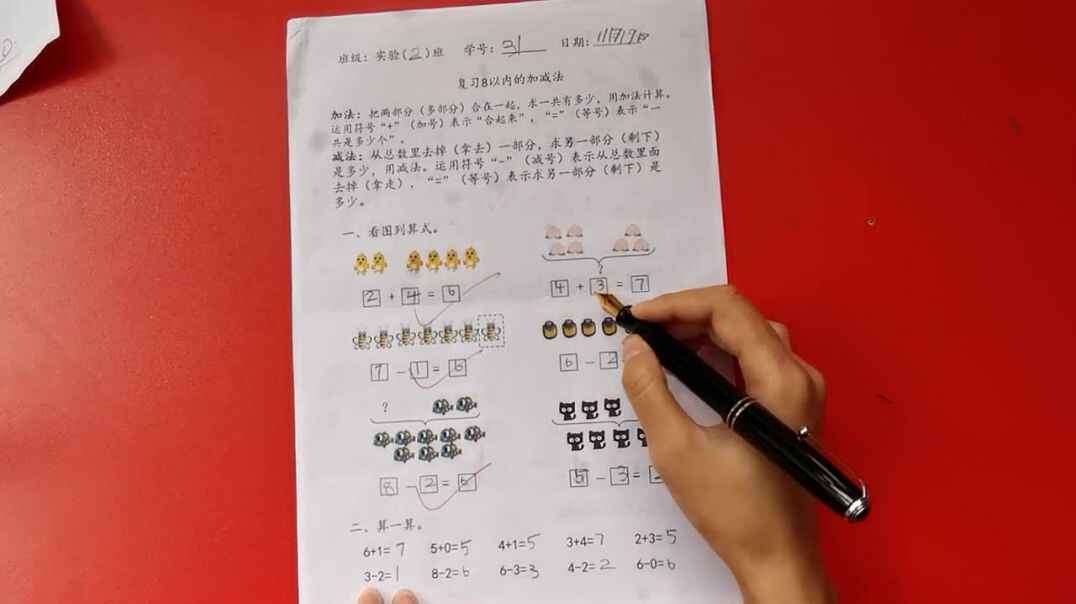 班级：实验(2)班 学号：31 日期：
复习8以内的加减法
加法：把两部分（多部分）合在一起，求一共有多少，用加法计算。
运用符号“+”（加号）表示“合起来”，“=”（等号）表示“一
共是多少个”。
减法：从总数里去掉（拿去）一部分，求另一部分（剩下）
是多少，用减法。运用符号“-”（减号）表示从总数里面
去掉（拿走），“=”（等号）表示求另一部分（剩下）是
多少。
一、看图列算式。
?
2 + 4 = 6 4 + 3 = 7
7 - 1 = 6 6 - 2
?
8 - 2 = 6 5 - 3 =
二、算一算。
6+1=7 5+0=5 4+1=5 3+4=7 2+3=5
3-2=1 8-2=6 6-3=3 4-2=2 6-0=6